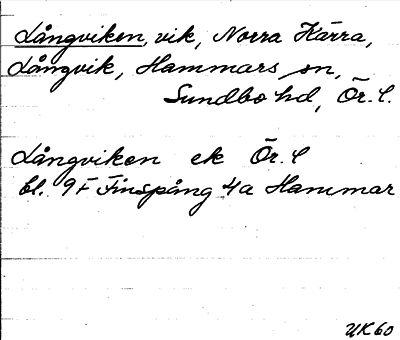 Långviken, vik, Norra Kärra,
Långvik, Hammars sn,
Sundbo hd, Ör. l.
Långviken ek Ör. l
bl. 9F Finspång 4a Hammar
UK60